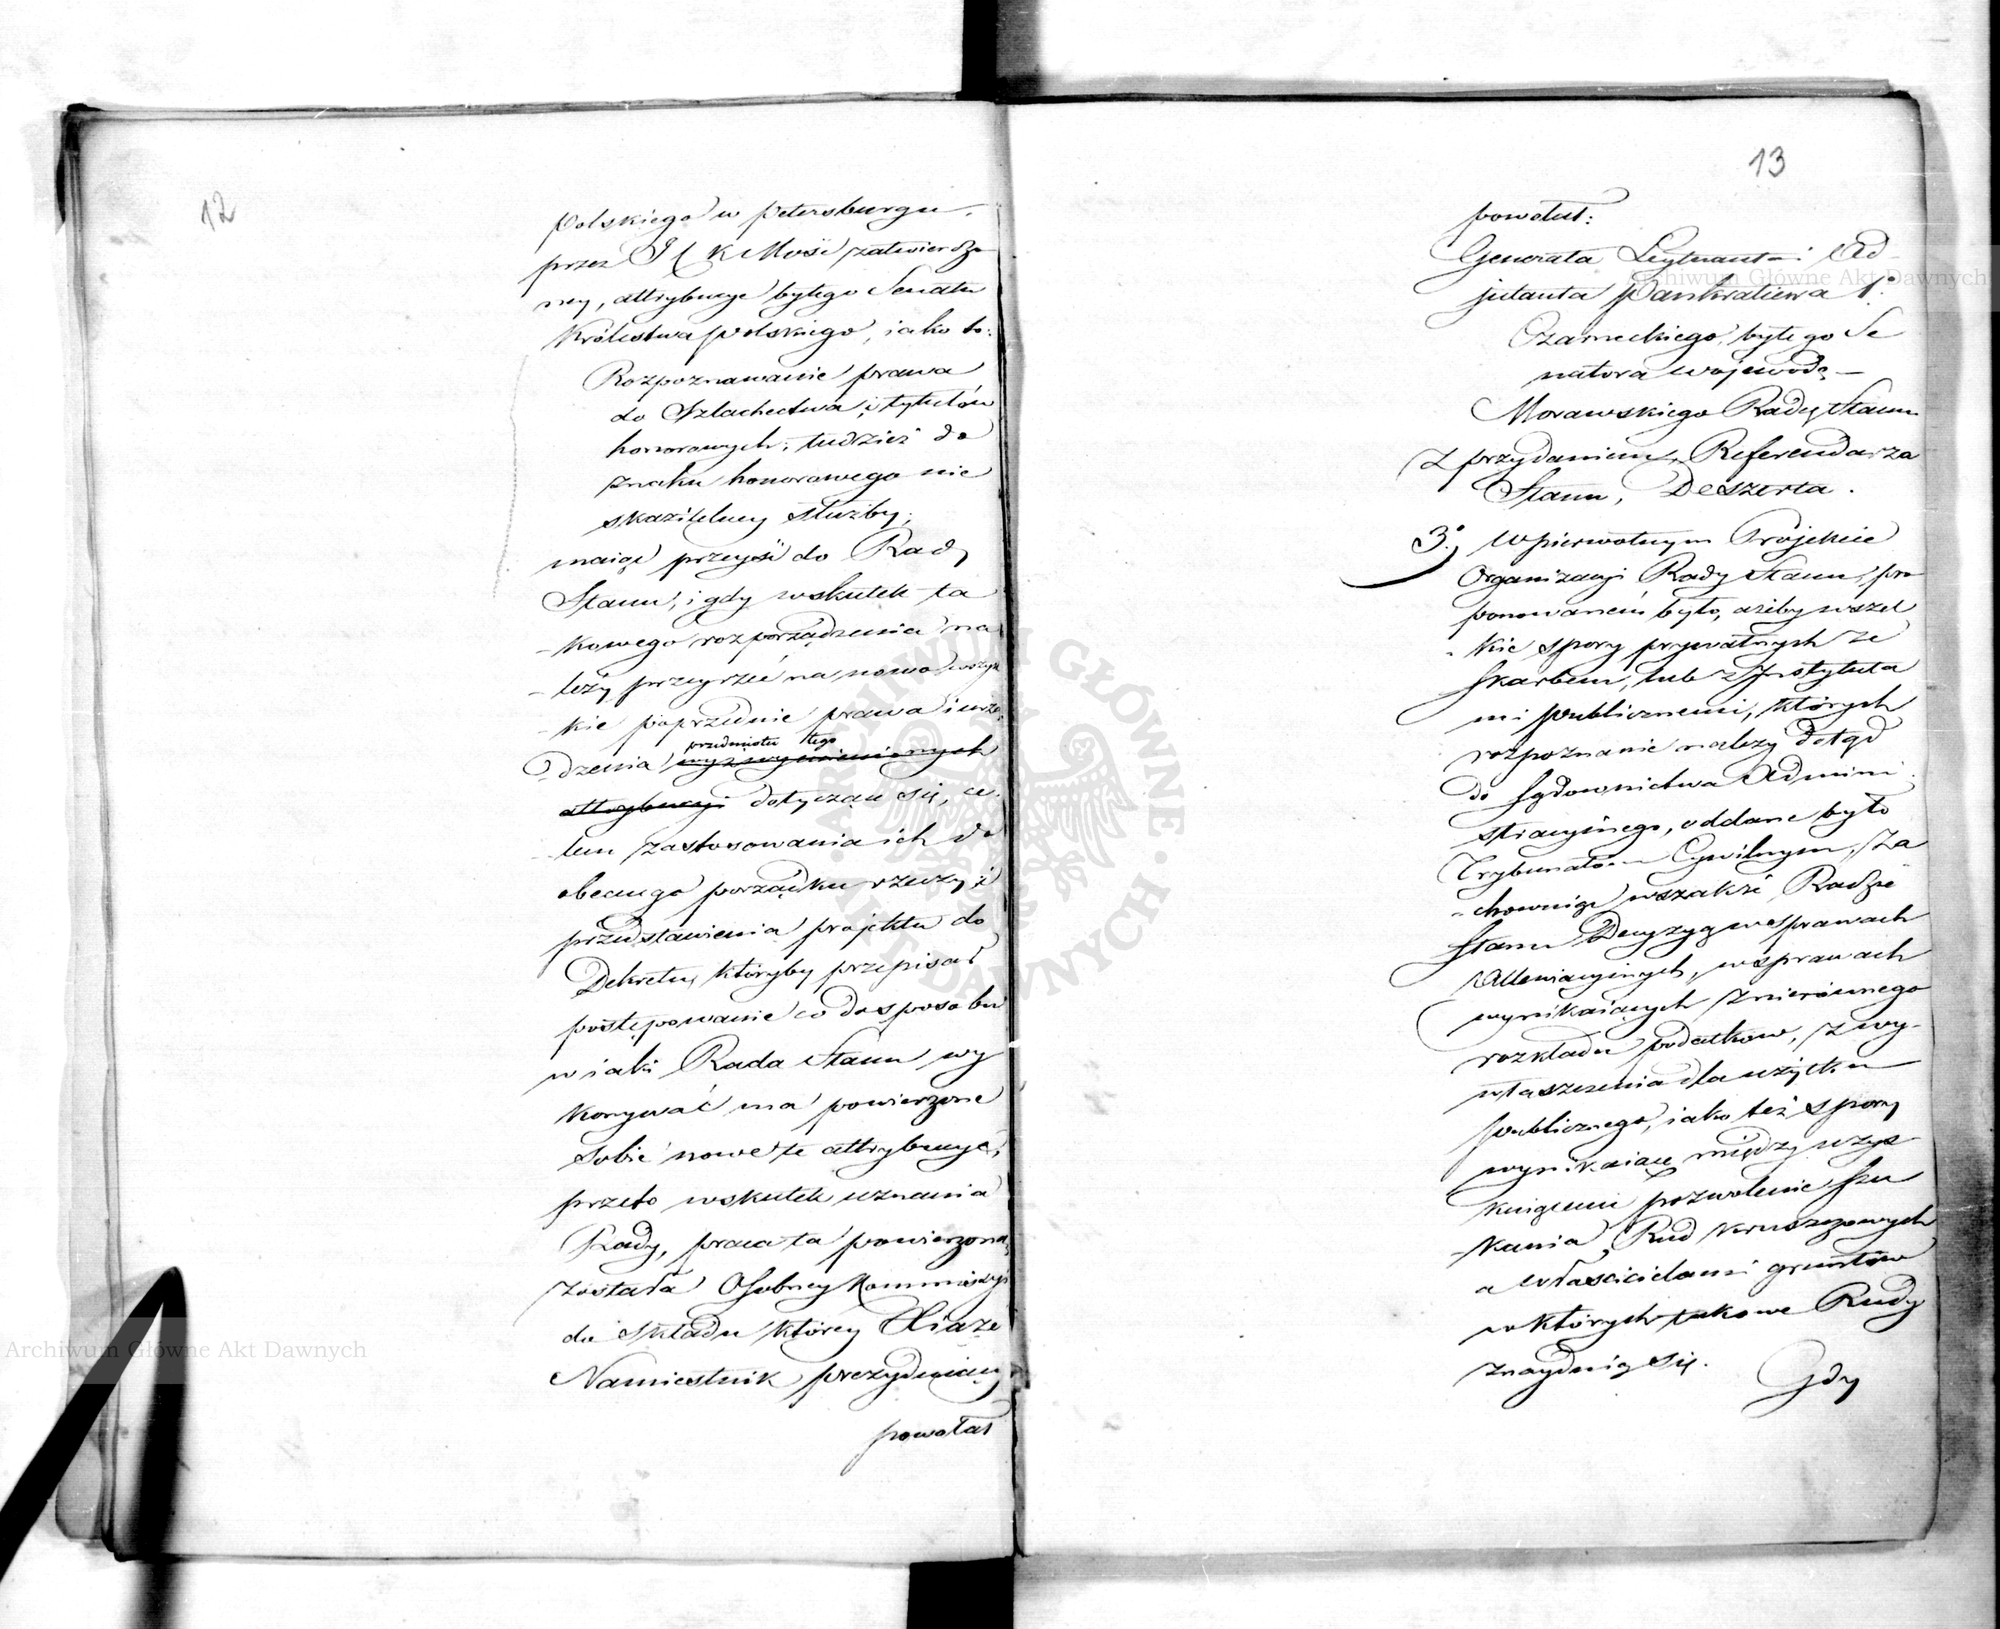 12
Polskiego w Petersburgu,
przez J C K Mość zatwierdzo
ney, attrybucye byłego Senatu
Królestwa Polskiego, iako to:
Rozpoznawanie prawa
do Szlachectwa, i tytułów
honorowych; tudzież do
znaku honorowego nie
skazitelney służby;
maią przeyść do Rady
Stanu, i gdy wskutek ta
-kowego rozporządzenia na
-leży przeyrzeć na nowo wszys
kie poprzednie prawa i urzą
dzenia przedmiotu tego
wyż wymienionych
attrybucyi dotyczące się, ce
lem zastosowania ich do
obecnego porządku rzeczy i
przedstawienia projektu do
Dekretu, któryby przepisał
postępowanie co do sposobu
w iaki Rada Stanu wy
konywać ma powierzone
sobie nowe te attrybucye,
przeto wskutek uznania
Rady, praca ta powierzoną
została Osobney Kommissyi
do składu którey Xiąże
Namiestnik prezyduiący
powołał
13
powołał:
Generała Leytnanta i Ad-
jutanta Pankratiewa 1.
Czarneckiego, byłego Se
natora Wojewodę —
Morawskiego Radcę Stanu
z przydaniem, Referendarza
Stanu, Deszerta.
3. W pierwotnym Projekcie
Organizacyi Rady Stanu, pro
ponowanem było, ażeby wszel
kie spory prywatnych ze
Skarbem, lub z Instytuta
mi publicznemi, których
rozpoznanie należy dotąd
do Sądownictwa Admini
stracyinego, oddane było
Trybunałom Cywilnym, za
-chowuiąc wszakże Radzie
Stanu Decyzyą w sprawach
wynikaiących z nierównego
rozkładu podatkow, z wy-
właszczenia dla użytku
publicznego, iako też spory
wynikaiące między uzys
kuiącemi pozwolenie szu
-kania Rud kruszcowych
a właścicielami gruntów
w których takowe Rudy
znayduią się.
Gdy
Archiwum Główne Akt Dawnych
Archiwum Główne Akt Dawnych
ARCHIWUM GŁÓWNE AKT DAWNYCH